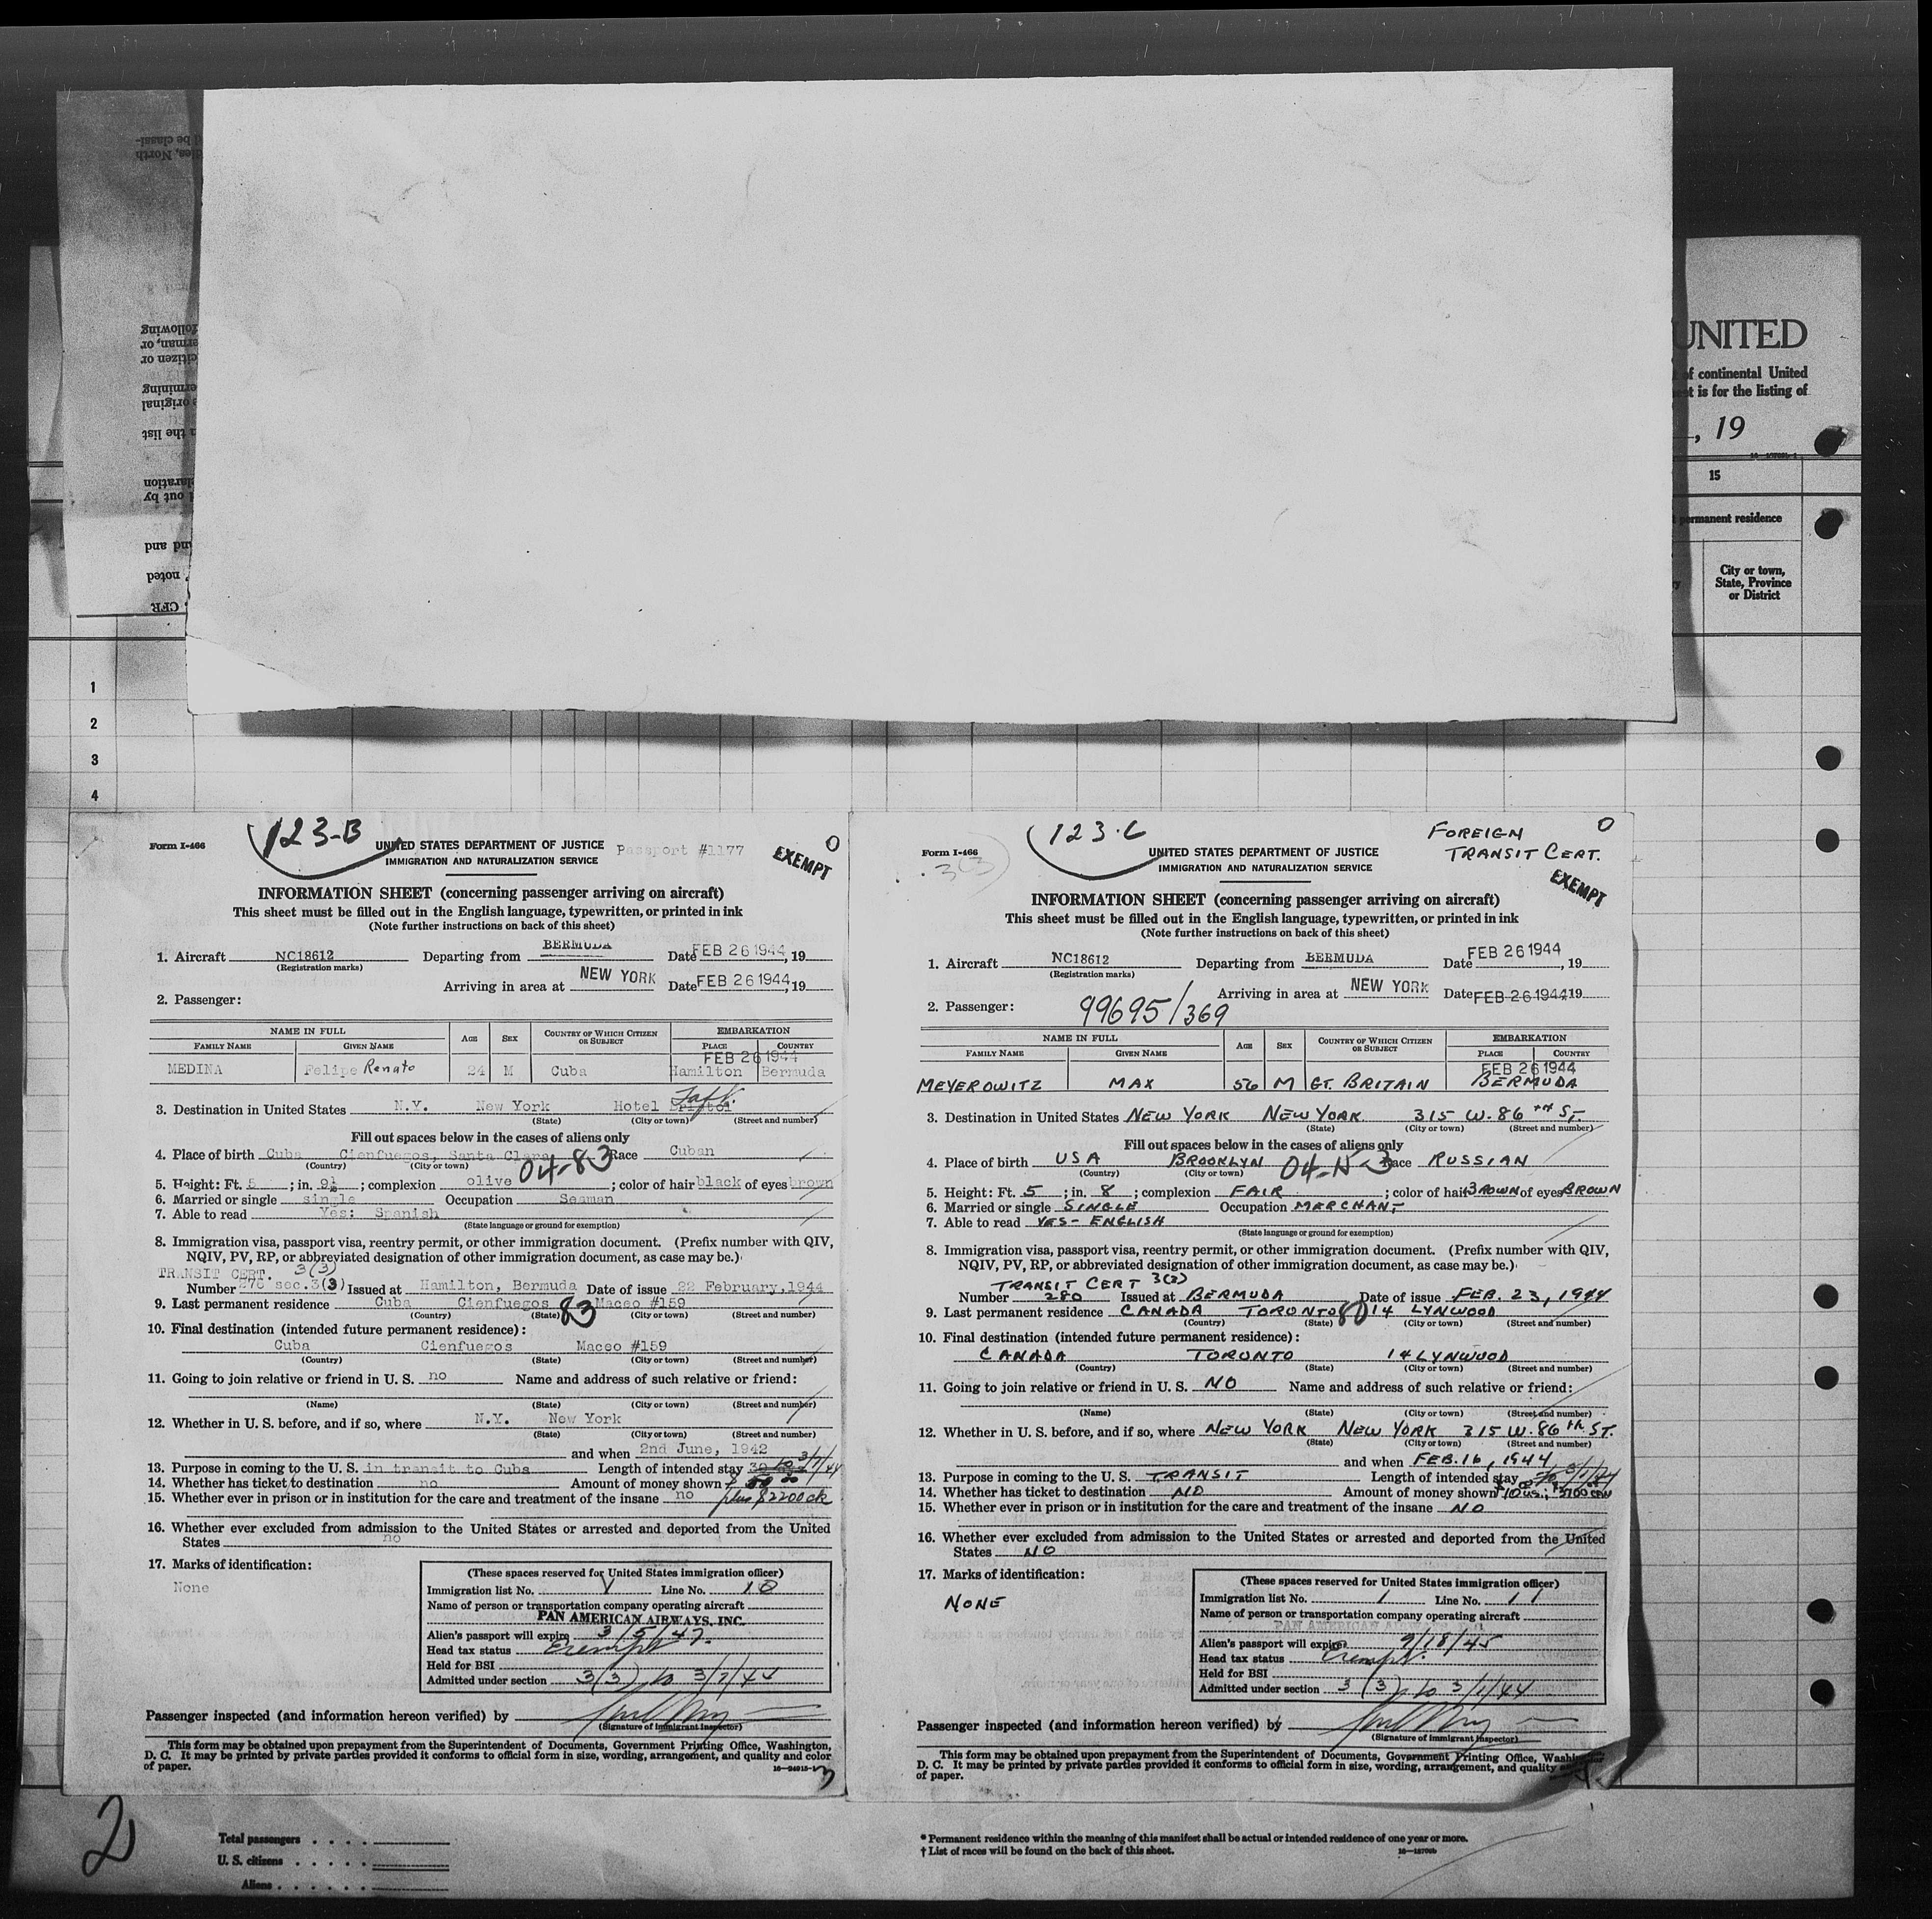 UNITED
of continental United
is for the listing of
, 19
15
permanent residence
City or town,
State, Province
or District
1
2
3
4
123-B
Form I-466
UNITED STATES DEPARTMENT OF JUSTICE
Passport #1177
IMMIGRATION AND NATURALIZATION SERVICE
EXEMPT
INFORMATION SHEET (concerning passenger arriving on aircraft)
This sheet must be filled out in the English language, typewritten, or printed in ink
(Note further instructions on back of this sheet)
1. Aircraft NC18612 Departing from BERMUDA Date FEB 26 1944, 19
(Registration marks)
Arriving in area at NEW YORK Date FEB 26 1944, 19
2. Passenger:
NAME IN FULL AGE SEX COUNTRY OF WHICH CITIZEN OR SUBJECT EMBARKATION
FAMILY NAME GIVEN NAME PLACE COUNTRY
FEB 26 1944
MEDINA Felipe Renato 24 M Cuba Hamilton Bermuda
3. Destination in United States N.Y. New York Hotel Bristol Taft
(State) (City or town) (Street and number)
Fill out spaces below in the cases of aliens only
4. Place of birth Cuba Cienfuegos, Santa Clara 04-83 Race Cuban
(Country) (City or town)
5. Height: Ft. 5 ; in. 9½ ; complexion olive ; color of hair black of eyes brown
6. Married or single single Occupation Seaman
7. Able to read Yes: Spanish
(State language or ground for exemption)
8. Immigration visa, passport visa, reentry permit, or other immigration document. (Prefix number with QIV,
NQIV, PV, RP, or abbreviated designation of other immigration document, as case may be.)
TRANSIT CERT. 3(3)
Number 276 sec.3(3) Issued at Hamilton, Bermuda Date of issue 22 February, 1944
9. Last permanent residence Cuba Cienfuegos 83 Maceo #159
(Country) (State) (City or town) (Street and number)
10. Final destination (intended future permanent residence):
Cuba Cienfuegos Maceo #159
(Country) (State) (City or town) (Street and number)
11. Going to join relative or friend in U. S. no Name and address of such relative or friend:
(Name) (State) (City or town) (Street and number)
12. Whether in U. S. before, and if so, where N.Y. New York
(State) (City or town) (Street and number)
and when 2nd June, 1942
13. Purpose in coming to the U. S. in transit to Cuba Length of intended stay 30 to 3/7/44
14. Whether has ticket to destination no Amount of money shown
15. Whether ever in prison or in institution for the care and treatment of the insane no plus $2200 ck
16. Whether ever excluded from admission to the United States or arrested and deported from the United
States no
17. Marks of identification:
None
(These spaces reserved for United States immigration officer)
Immigration list No. Line No. 10
Name of person or transportation company operating aircraft
PAN AMERICAN AIRWAYS, INC.
Alien's passport will expire 3/5/47.
Head tax status Exempt
Held for BSI
Admitted under section 3(3) to 3/7/45
Passenger inspected (and information hereon verified) by
(Signature of immigrant inspector)
This form may be obtained upon prepayment from the Superintendent of Documents, Government Printing Office, Washington,
D. C. It may be printed by private parties provided it conforms to official form in size, wording, arrangement, and quality and color
of paper.
123-C
FOREIGN
TRANSIT CERT.
Form I-466
3(3)
UNITED STATES DEPARTMENT OF JUSTICE
IMMIGRATION AND NATURALIZATION SERVICE
EXEMPT
INFORMATION SHEET (concerning passenger arriving on aircraft)
This sheet must be filled out in the English language, typewritten, or printed in ink
(Note further instructions on back of this sheet)
1. Aircraft NC18612 Departing from BERMUDA Date FEB 26 1944, 19
(Registration marks)
Arriving in area at NEW YORK Date FEB 26 1944 19
2. Passenger: 99695/369
NAME IN FULL AGE SEX COUNTRY OF WHICH CITIZEN OR SUBJECT EMBARKATION
FAMILY NAME GIVEN NAME PLACE COUNTRY
FEB 26 1944
MEYEROWITZ MAX 56 M GT. BRITAIN BERMUDA
3. Destination in United States NEW YORK NEW YORK 315 W. 86TH ST.
(State) (City or town) (Street and number)
Fill out spaces below in the cases of aliens only
4. Place of birth USA BROOKLYN Race RUSSIAN
(Country) (City or town)
5. Height: Ft. 5 ; in. 8 ; complexion FAIR ; color of hair BROWN of eyes BROWN
6. Married or single SINGLE Occupation MERCHANT
7. Able to read YES - ENGLISH
(State language or ground for exemption)
8. Immigration visa, passport visa, reentry permit, or other immigration document. (Prefix number with QIV,
NQIV, PV, RP, or abbreviated designation of other immigration document, as case may be.)
TRANSIT CERT 3(3)
Number 280 Issued at BERMUDA Date of issue FEB. 23, 1944
9. Last permanent residence CANADA TORONTO 14 LYNWOOD
(Country) (State) (City or town) (Street and number)
10. Final destination (intended future permanent residence):
CANADA TORONTO 14 LYNWOOD
(Country) (State) (City or town) (Street and number)
11. Going to join relative or friend in U. S. NO Name and address of such relative or friend:
(Name) (State) (City or town) (Street and number)
12. Whether in U. S. before, and if so, where NEW YORK NEW YORK 315 W. 86TH ST.
(State) (City or town) (Street and number)
and when FEB. 16, 1944
13. Purpose in coming to the U. S. TRANSIT Length of intended stay
14. Whether has ticket to destination NO Amount of money shown
15. Whether ever in prison or in institution for the care and treatment of the insane NO
16. Whether ever excluded from admission to the United States or arrested and deported from the United
States NO
17. Marks of identification:
NONE
(These spaces reserved for United States immigration officer)
Immigration list No. 1 Line No. 11
Name of person or transportation company operating aircraft
Alien's passport will expire 9/18/45
Head tax status Exempt.
Held for BSI
Admitted under section 3(3) to 3/1/44
Passenger inspected (and information hereon verified) by
(Signature of immigrant inspector)
This form may be obtained upon prepayment from the Superintendent of Documents, Government Printing Office, Washington
D. C. It may be printed by private parties provided it conforms to official form in size, wording, arrangement, and quality
of paper.
2
Total passengers
U. S. citizens
Aliens
* Permanent residence within the meaning of this manifest shall be actual or intended residence of one year or more.
† List of races will be found on the back of this sheet.